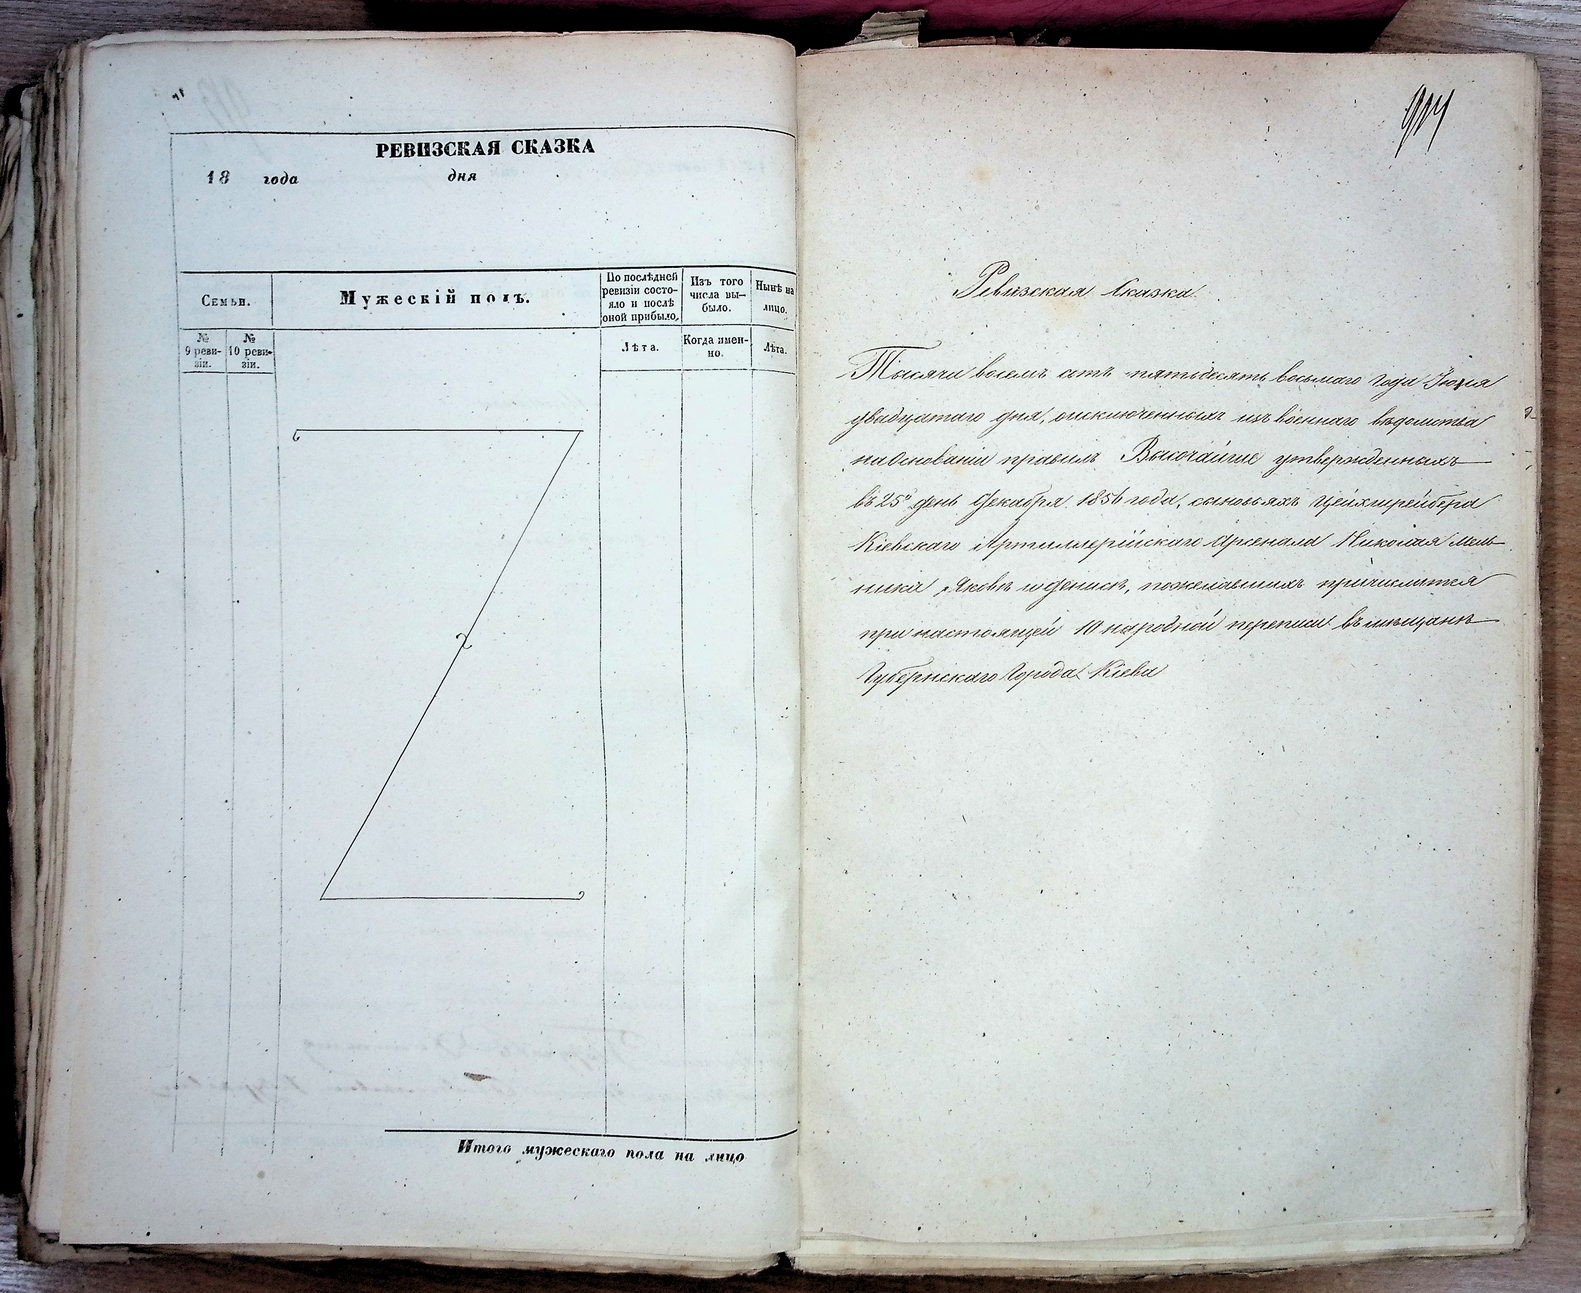 РЕВИЗСКАЯ СКАЗКА
18 года дня
Семьи.
Мужескій полъ.
По послѣдней
ревизіи состо-
яло и послѣ
оной прибыло.
Изъ того
числа вы-
было.
Нынѣ на
лицо.
№
9 реви-
зіи.
№
10 реви-
зіи.
Лѣта.
Когда имен-
но.
Лѣта.
Итого мужескаго пола на лицо
914
Ревизская Сказка
Тысяча восемъ сотъ пятьдесятъ восьмаго года Іюня
двадцатаго дня, оисключенныхъ изъ военнаго вѣдомства
наосновании правилъ Высочайше утвержденныхъ
въ 25й день Декабря 1856 года, сыновьяхъ Цейхшрейбера
Кіевскаго Артиллерійскаго Арсенала Николая Мель-
ника Яковѣ и Денисѣ, пожелавшихъ причислится
при настоящей 10 народной переписи въ мѣщане
Губернскаго Города Кіева